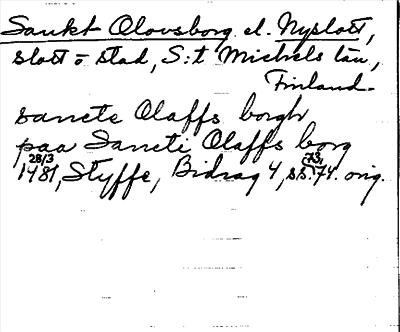 Sankt Olovsborg el. Nyslott,
slott o stad, S:t Michels län,
Finland.
sancte Olaffs borgh
paa Sancti Olaffs borg
28/3 1481, Styffe, Bidrag 4, ss. 73, 74. orig.